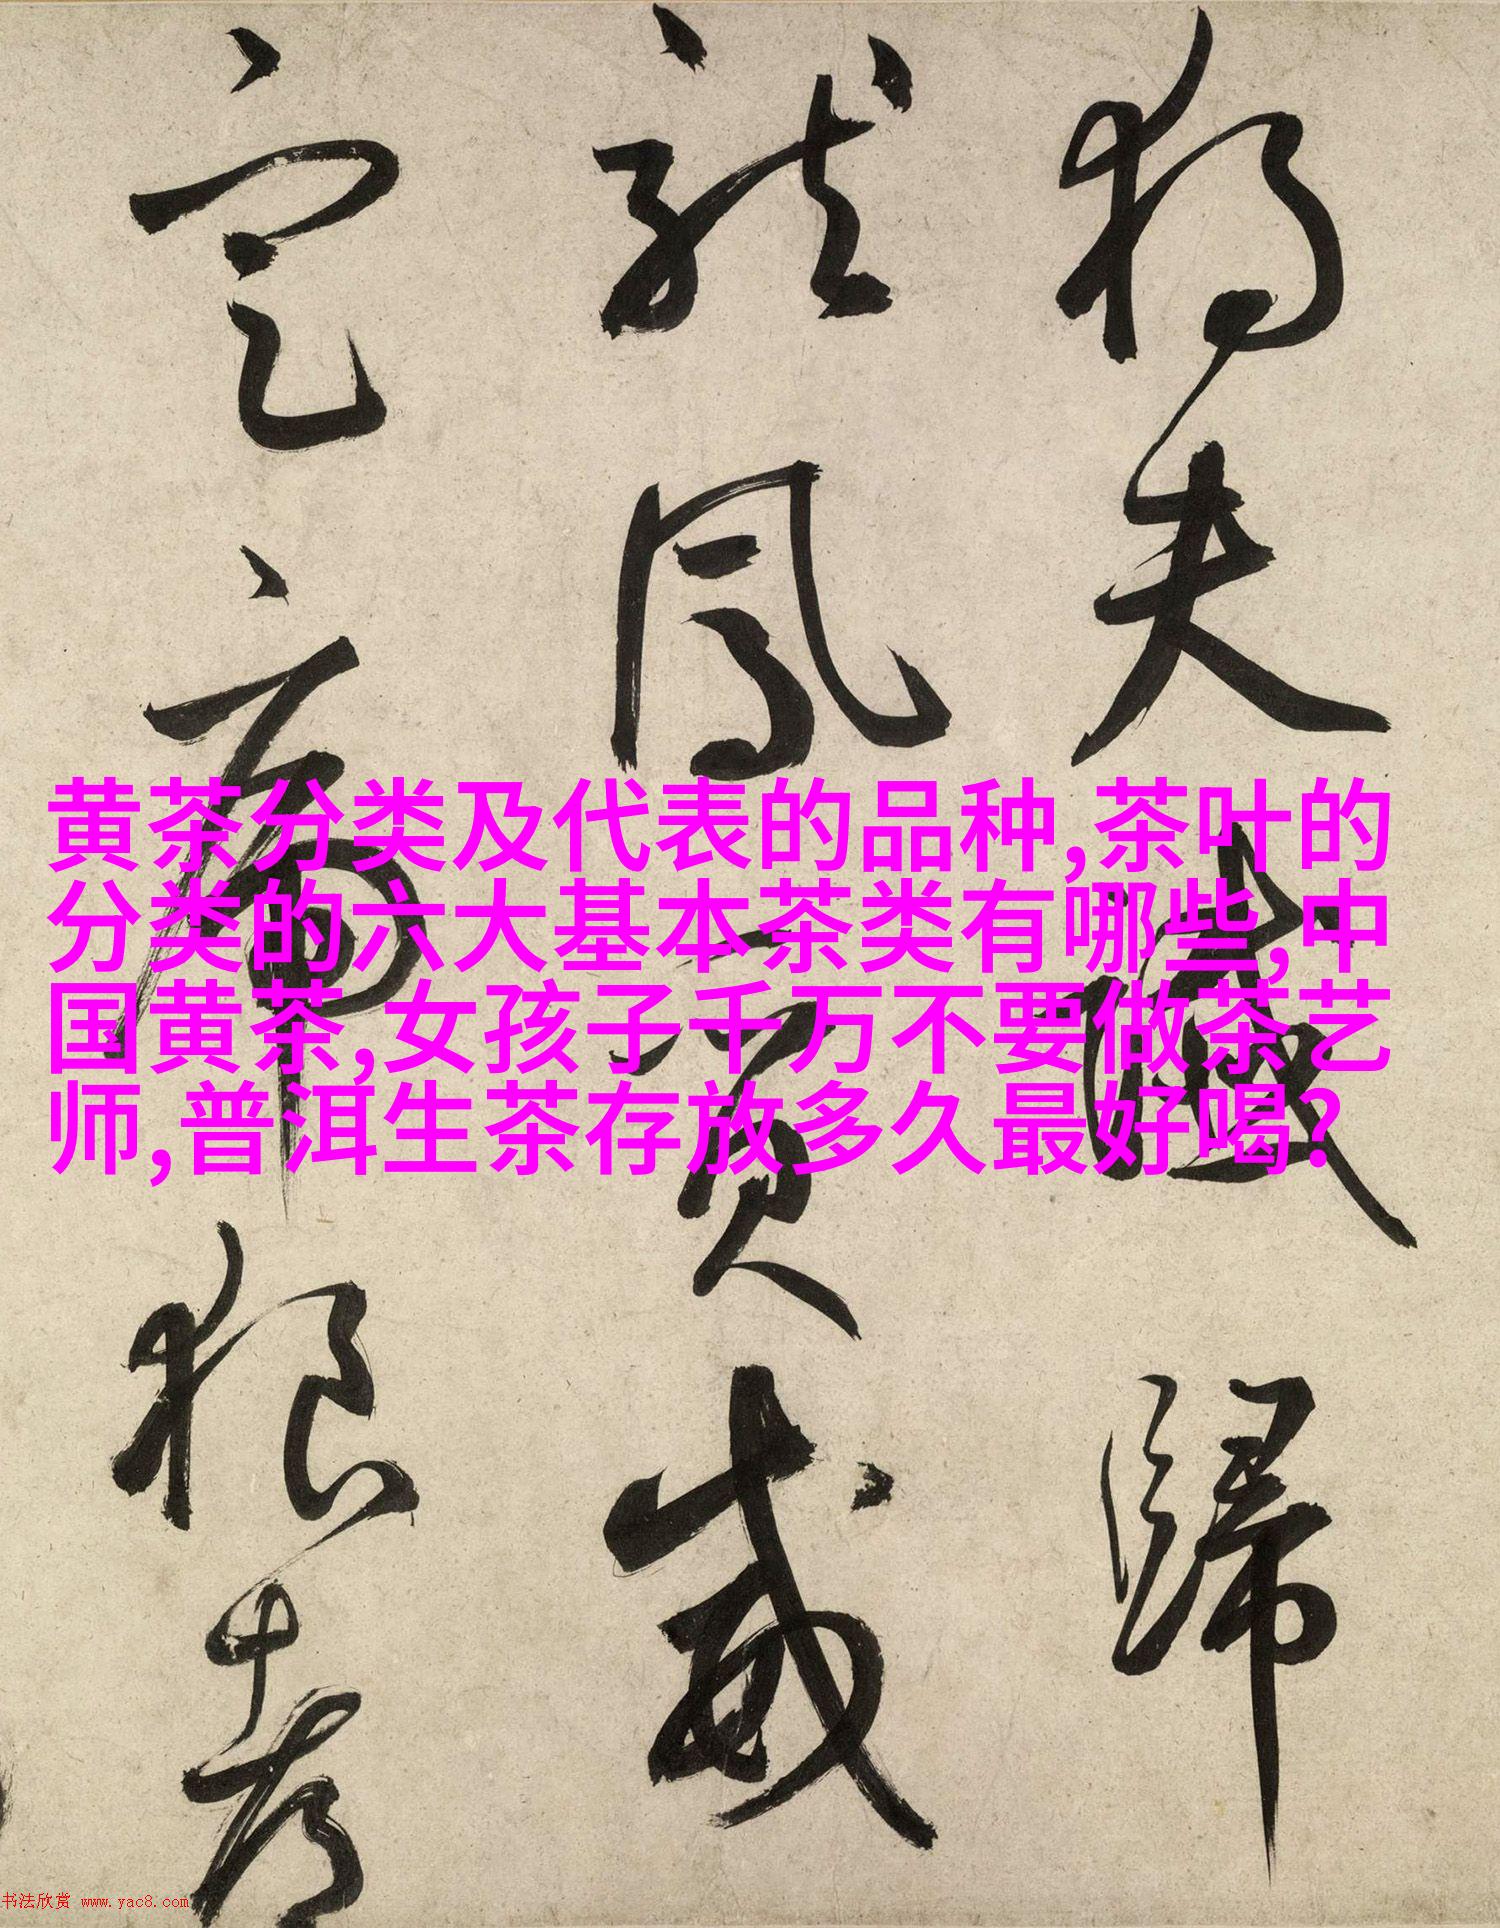 独夫
歸
龍鳳
質
威
定
帝
狼
黄茶分类及代表的品种,茶叶的
分类的六大基本茶类有哪些,中
国黄茶,女孩子千万不要做茶艺
师,普洱生茶存放多久最好喝?
书法欣赏 www.yac8.com